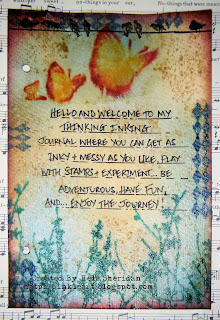 HELLO AND WELCOME TO MY
THINKING INKING
JOURNAL WHERE YOU CAN GET AS
INKY + MESSY AS YOU LIKE, PLAY
WITH STAMPS + EXPERIMENT... BE
ADVENTUROUS, HAVE FUN,
AND... ENJOY THE JOURNEY!
Created By Hels Sheridan